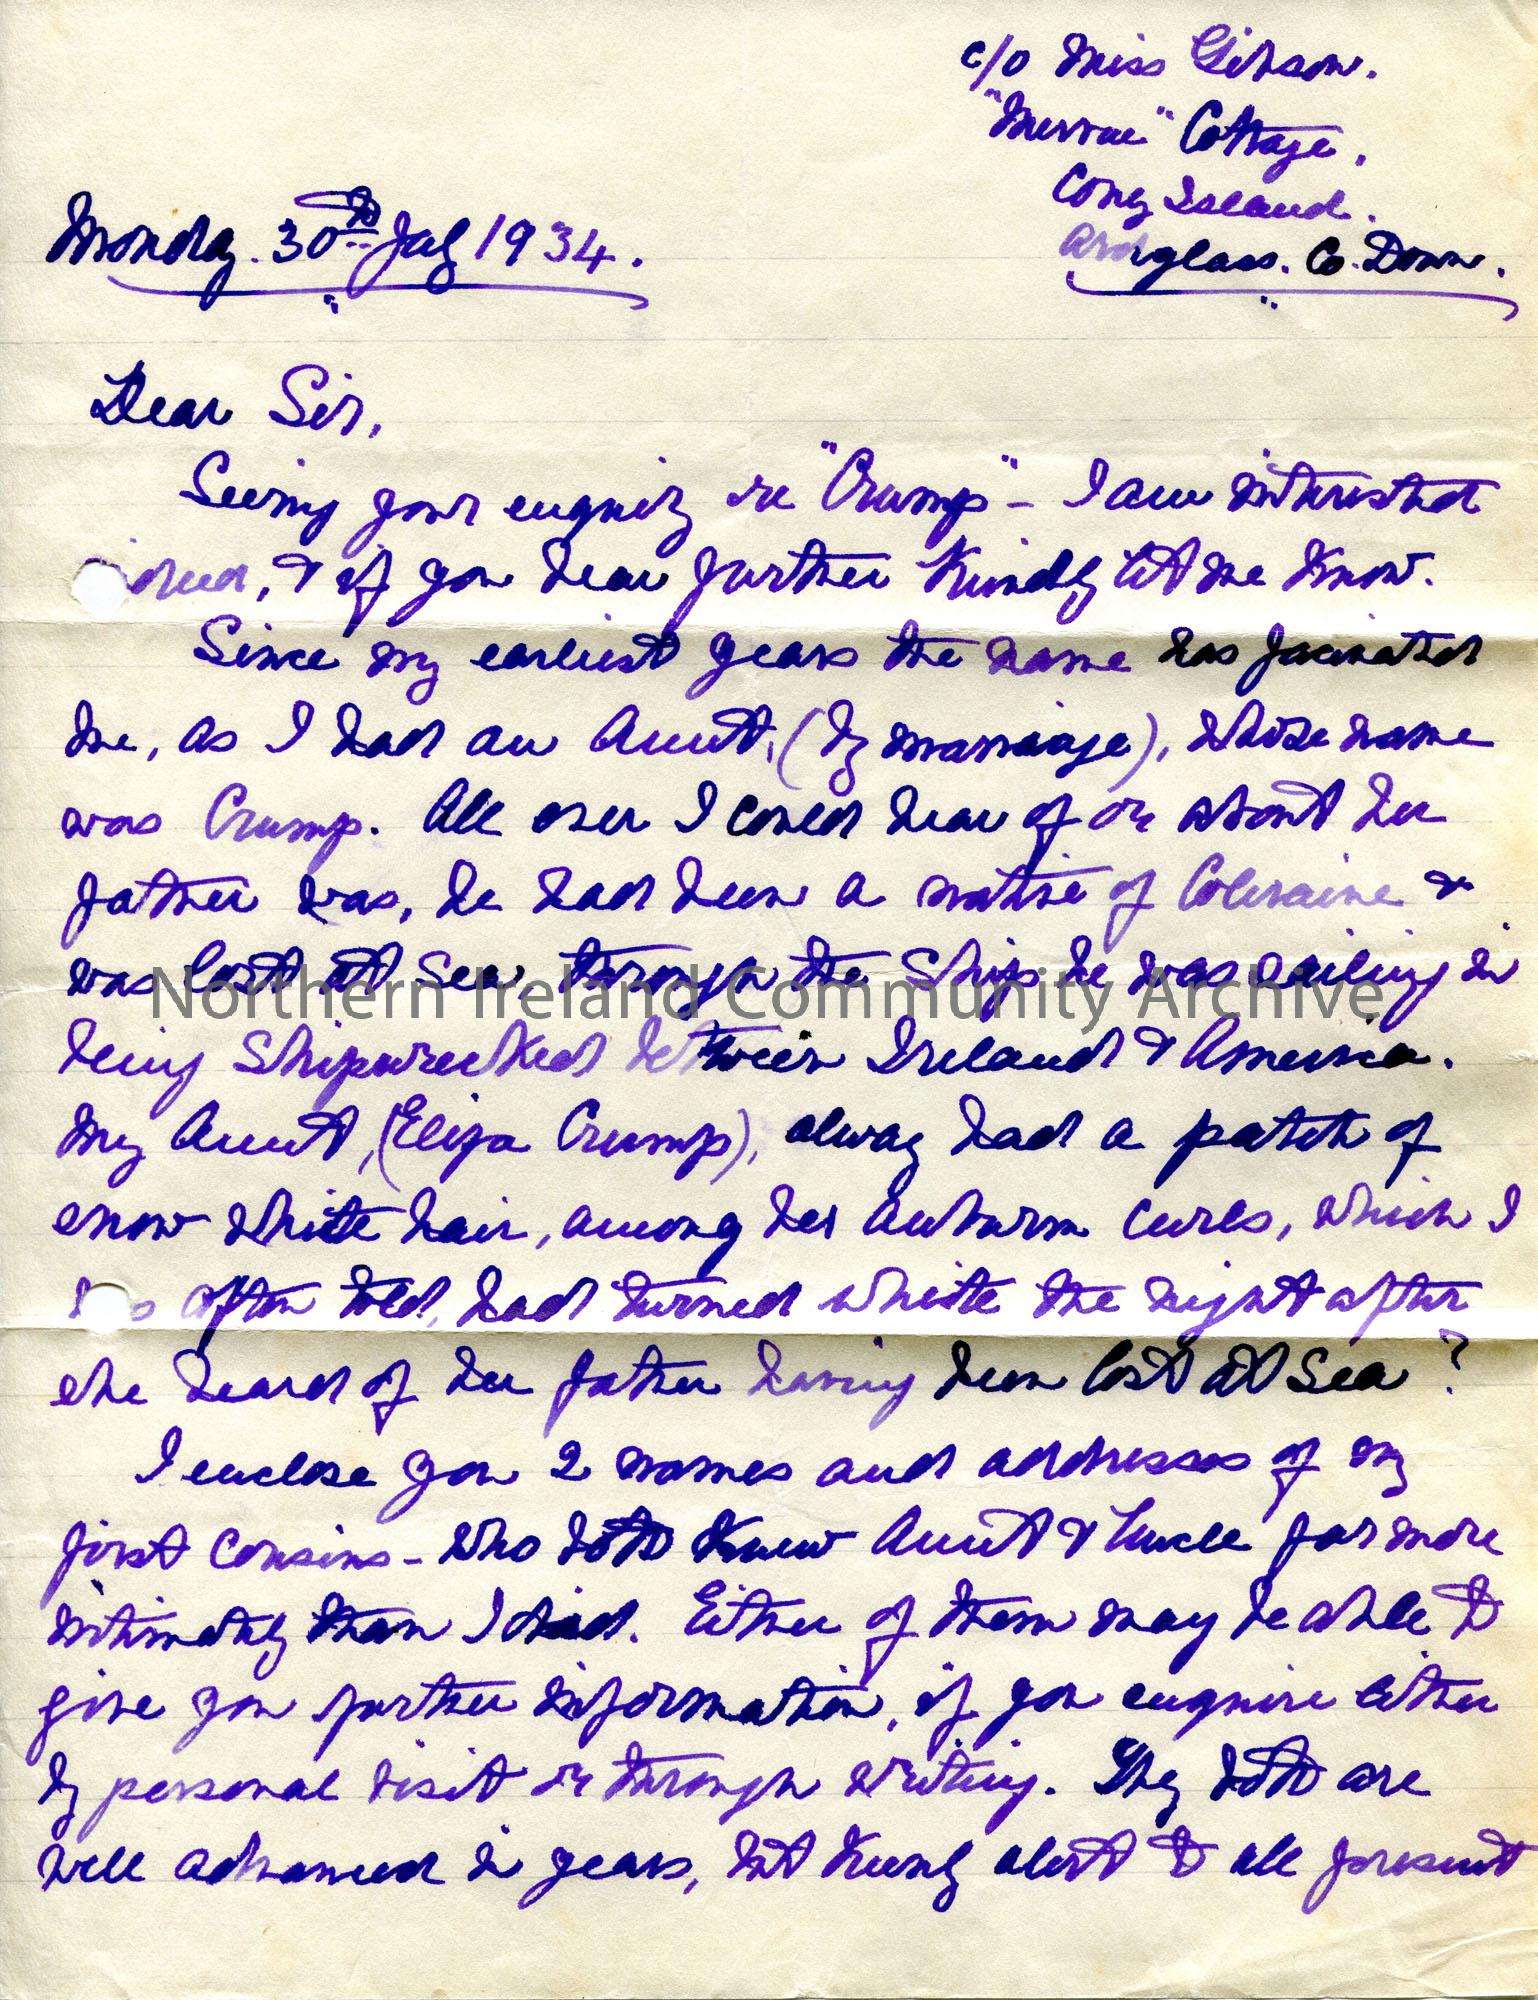 c/o Miss Gibson.
" Cottage,
Cony Island.
Ardglass. Co. Down.
Monday. 30th July 1934.
Dear Sir,
Seeing your enquiry re "Crump" - I am interested
indeed, & if you hear further kindly let me know.
Since my earliest years the name has facinated
me, as I had an Aunt, (by marriage), whose name
was Crump. All ever I could hear of or about her
father was, he had been a native of Coleraine &
was lost at Sea, through the Ship he was sailing in
being Shipwrecked between Ireland & America.
My Aunt, (Eliza Crump), alway had a patch of
snow white hair, among her Auburn curls, which I
was often told, had turned white the night after
she heard of her father having been lost at Sea?
I enclose you 2 names and addresses of my
first Cousins - who both knew Aunt & Uncle far more
intimately than I did. Either of them may be able to
give you further information, if you enquire either
by personal visit or through writing. They both are
well advanced in years, but keenly alert to all present
Northern Ireland Community Archive